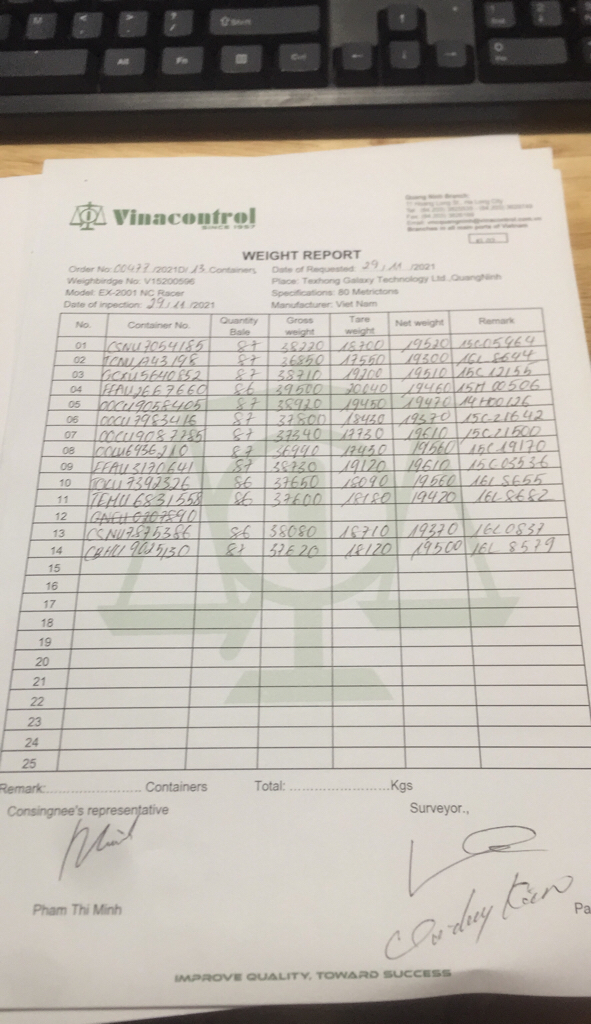 Shift
Alt
Fn
Ctrl
Vinacontrol
SINCE 1957
Quang Ninh Branch
Branches in all main ports of Vietnam
WEIGHT REPORT
Order No: 00477 /2021D/ 13 Containers Date of Requested: 29 / 11 /2021
Weighbirdge No: V15200596 Place: Texhong Galaxy Technology Ltd.,QuangNinh
Model: EX-2001 NC Racer Specifications: 80 Metrictons
Date of inpection: 29 / 11 /2021 Manufacturer: Viet Nam
No. Container No. Quantity Bale Gross weight Tare weight Net weight Remark
01 CSNU7054185 87 38220 18700 19520 15C05964
02 87 36850 17550 19300 16L 8644
03 GCXU5640852 87 38710 19200 19510 15C 12155
04 FFAU2667660 86 39500 20040 19460 15H 00506
05 OOCU9058405 87 38920 19450 19470 14H00126
06 OOCU7983416 87 37800 18430 19370 15C21642
07 OOCU9082785 87 37340 17730 19610 15C21500
08 87 36990 17430 19560 15C19170
09 FFAU3170641 87 38730 19120 19610 15C03536
10 86 37650 18090 19560 16L 8655
11 TEMU 6831558 86 37600 18180 19420 16L 8682
12
13 CSNU7875386 86 38080 18710 19370 16L0837
14 CBHU 9025130 87 37620 18120 19500 16L 8579
15
16
17
18
19
20
21
22
23
24
25
Remark:........................ Containers Total: ..........................Kgs
Consingnee's representative Surveyor.,
Pham Thi Minh
Pa
IMPROVE QUALITY, TOWARD SUCCESS